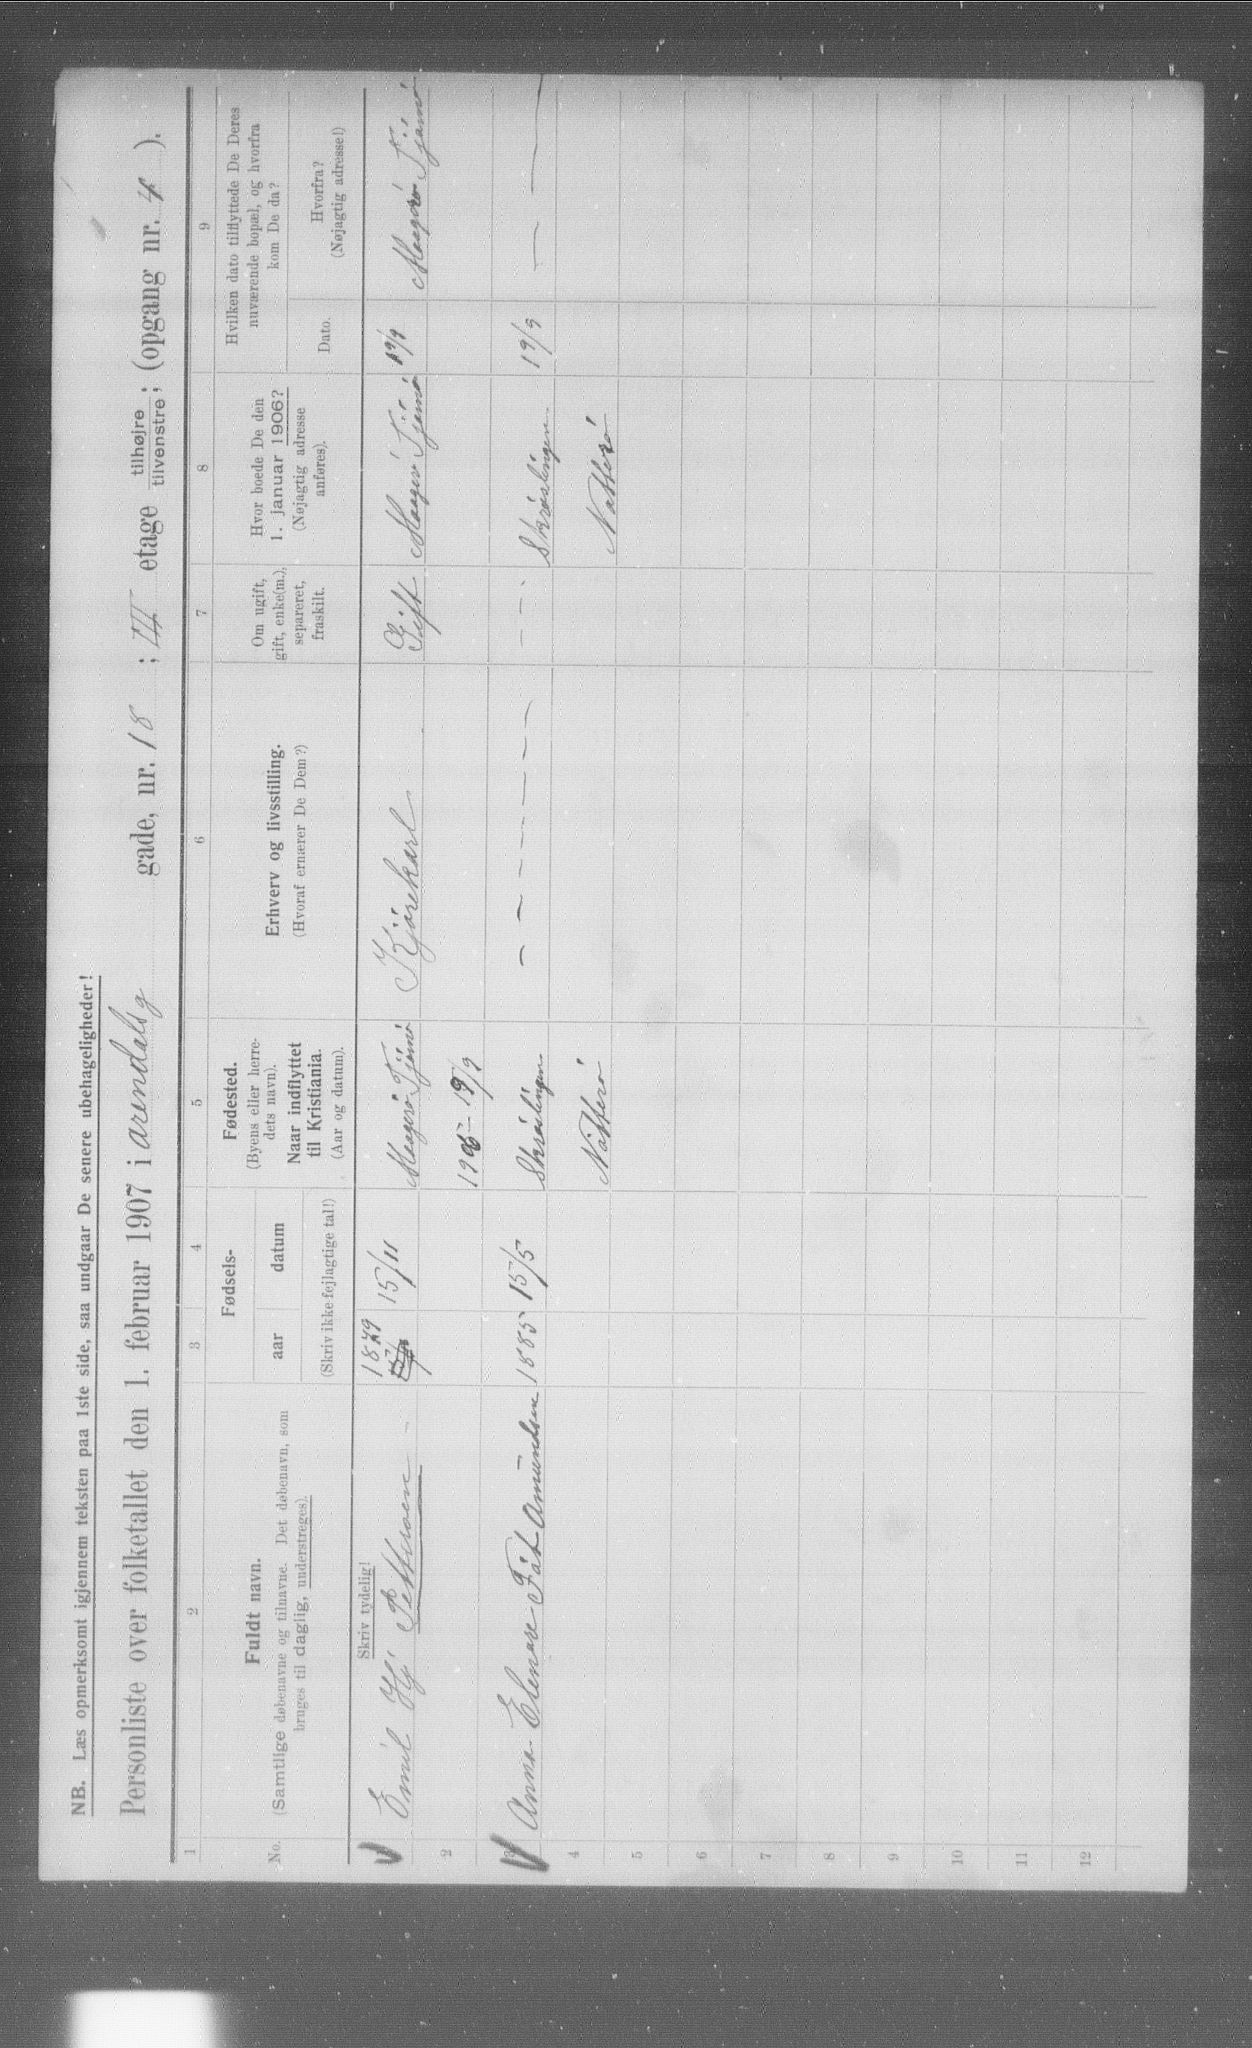 NB. Læs opmerksomt igjennem teksten paa 1ste side, saa undgaar De senere ubehageligheder!
Personliste over folketallet den 1. februar 1907 i arendalsg gade, nr. 18 ; III etage tilhøjre tilvenstre; (opgang nr. 4 ).
1 2 3 4 5 6 7 8 9
No.
Fuldt navn.
(Samtlige døbenavne og tilnavne. Det døbenavn, som
bruges til daglig, understreges).
Fødsels-
aar datum
(Skriv ikke fejlagtige tal!)
Fødested.
(Byens eller herre-
dets navn).
Naar indflyttet
til Kristiania.
(Aar og datum).
Erhverv og livsstilling.
(Hvoraf ernærer De Dem?)
Om ugift,
gift, enke(m.),
separeret,
fraskilt.
Hvor boede De den
1. januar 1906?
(Nøjagtig adresse
anføres).
Hvilken dato tilflyttede De Deres
nuværende bopæl, og hvorfra
kom De da?
Dato.
Hvorfra?
(Nøjagtig adresse!)
Skriv tydelig!
Emil Hj Pettersen 1879 15/11 Maagerö Tjømö Kjörekarl Gift Maagerö Tjømö 19/9 Maagerö Tjømö
2 19/9
3 Anna Elenore Föt Amundsen 1885 15/5 - - - - - - - - - 19/9 - - -
4 Nötterö Nötterö
5
6
7
8
9
10
11
12